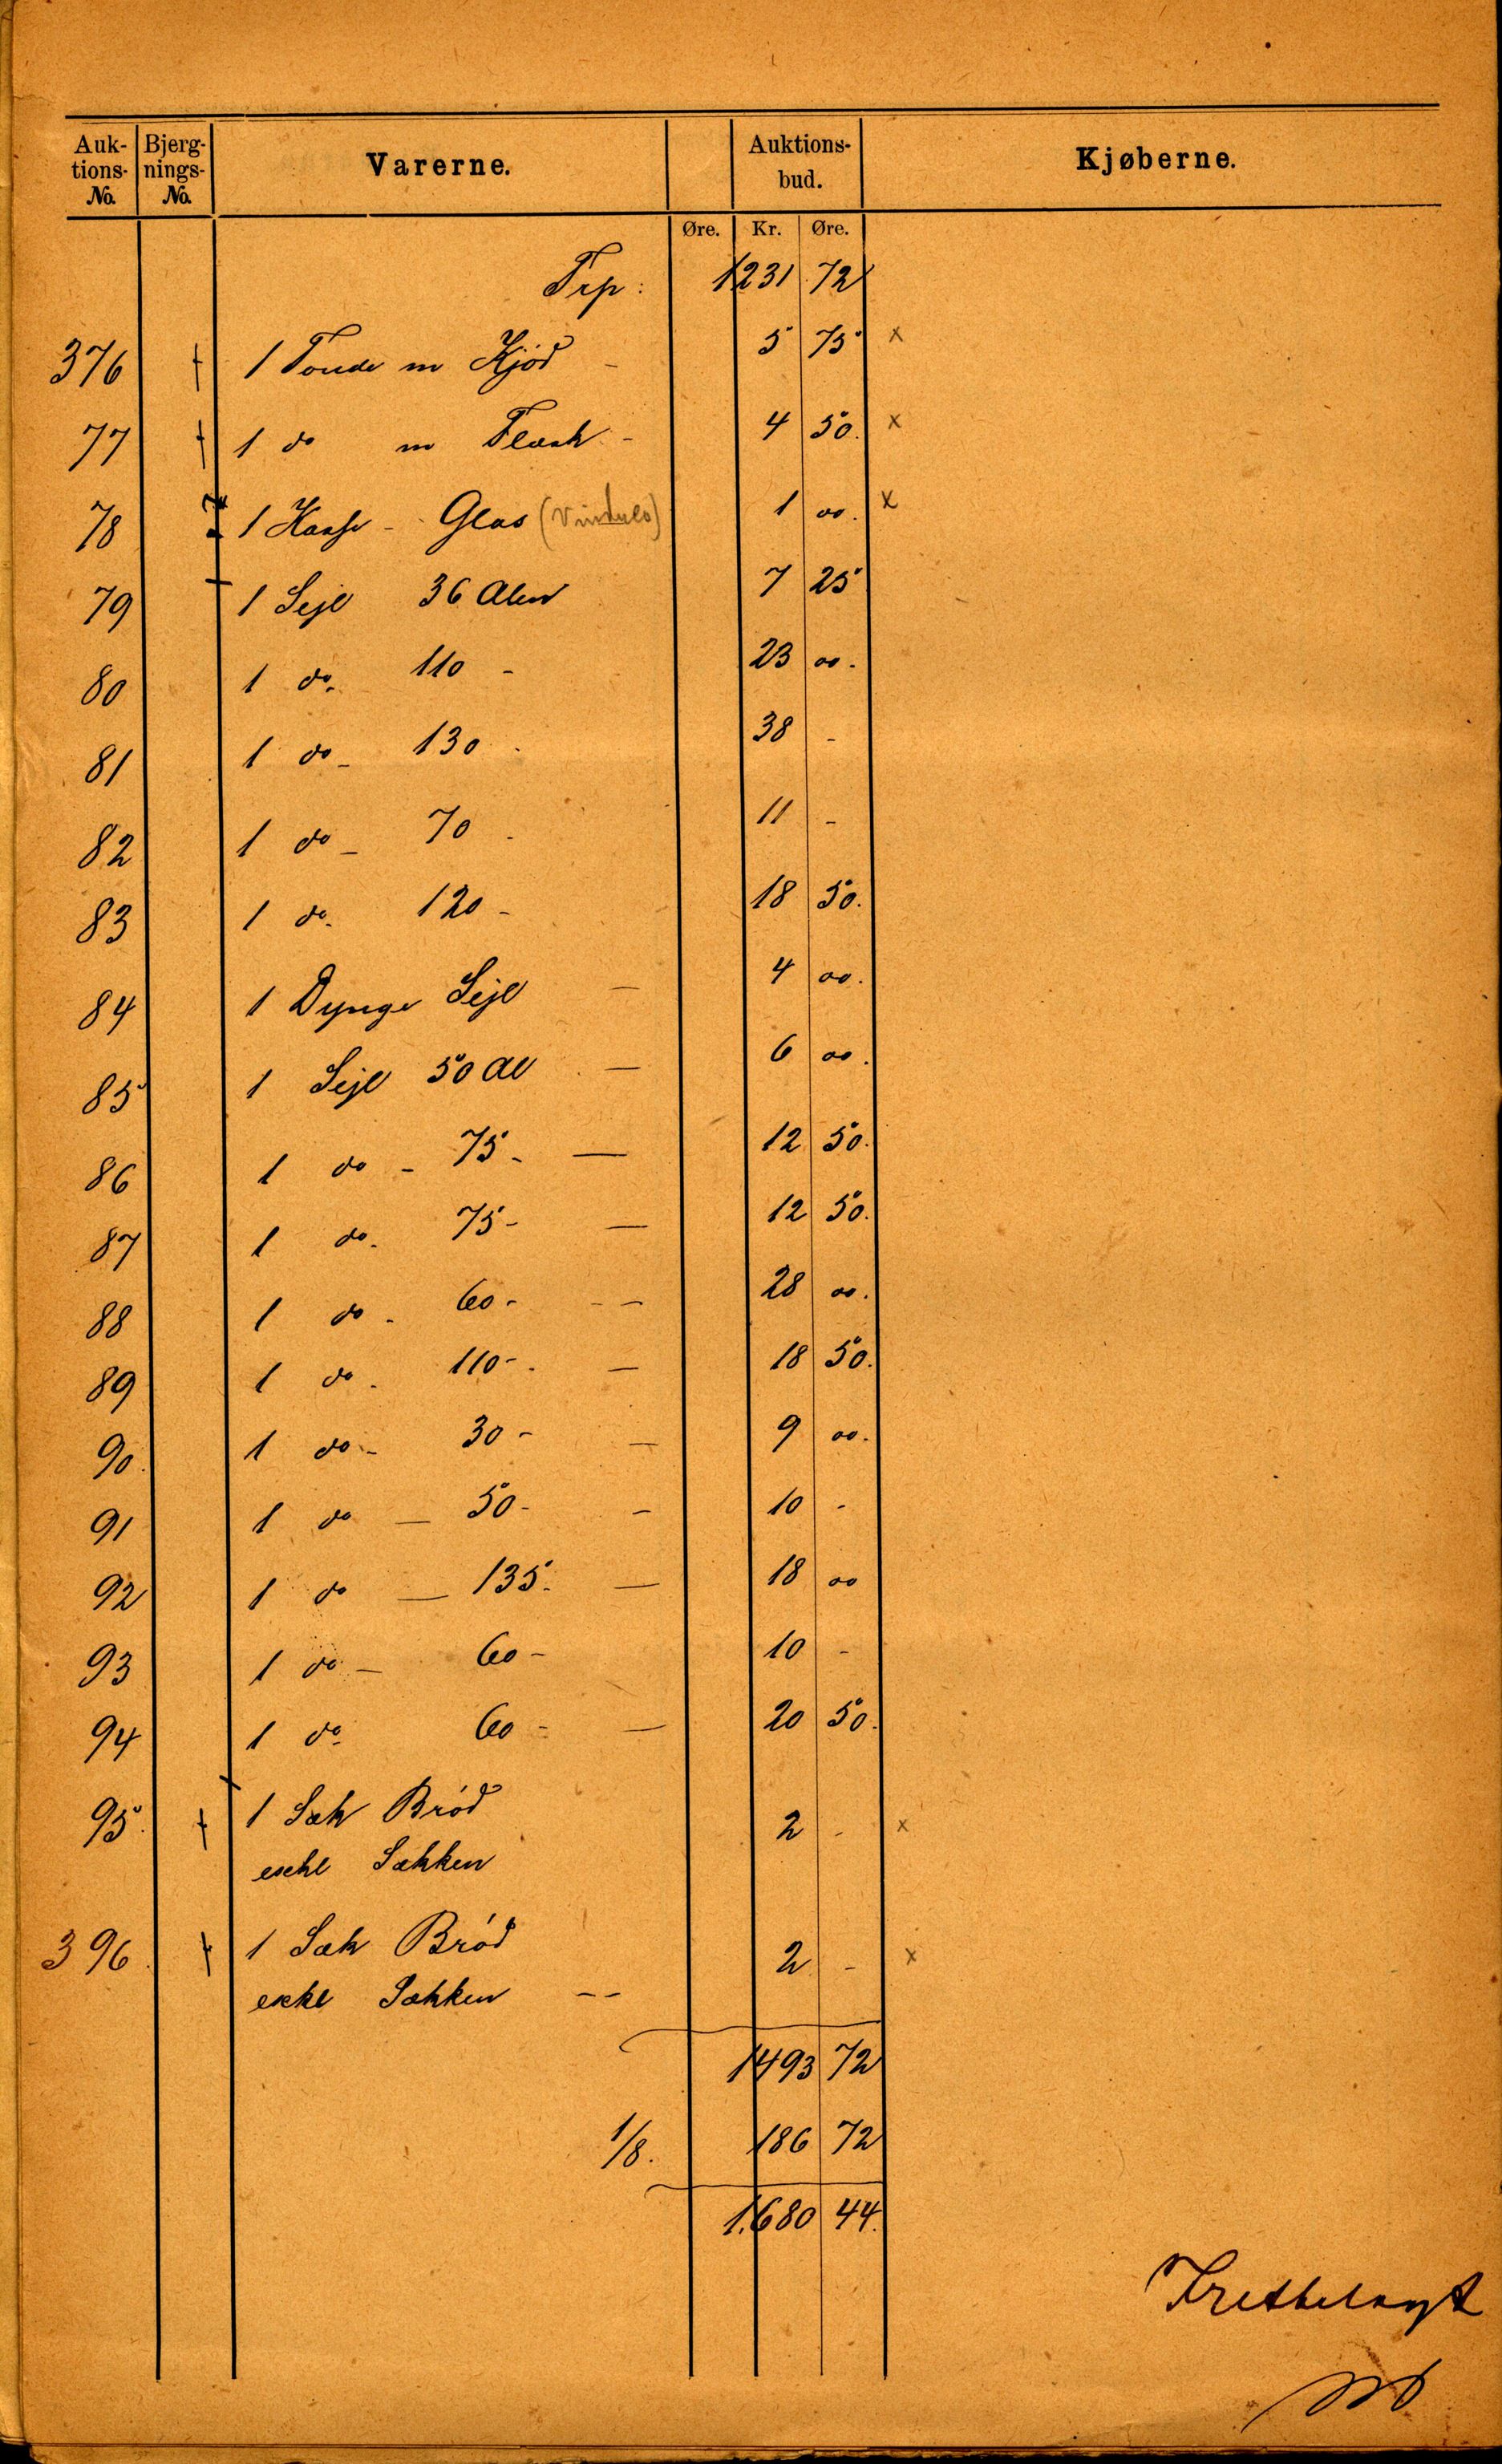 Auk-tions-No. Bjerg-nings-No. Varerne. Auktions-bud. Kjøberne.
Øre. Kr. Øre.
Trp: 1231 72
376 1 Tonde m Kjöd - 5 75 x
77 1 do m Flæsk - 4 50. x
78 1 Kasse - Glas (Vindues) 1 00. x
79 1 Sejl 36 Alen 7 25
80 1 do. 110 - 23 00.
81 1 do - 130 - 38 -
82 1 do - 70 - 11 -
83 1 do. 120 - 18 50.
84 1 Dynge Sejl - 4 00.
85 1 Sejl 50 Al - 6 00.
86 1 do - 75 - — 12 50.
87 1 do. 75 - — 12 50.
88 1 do. 60 - - - 28 00.
89 1 do. 110 - . — 18 50.
90. 1 do - 30 - — 9 00.
91 1 do — 50 - - 10 -
92 1 do — 135. — 18 00
93 1 do — 60 - 10 -
94 1 do 60 - — 20 50.
95. 1 Sæk Bröd 2 - x
exkl Sækken
396. 1 Sæk Bröd 2 - x
exkl Sækken - -
1493 72
1/8. 186 72
1.680 44.
Fremlagt